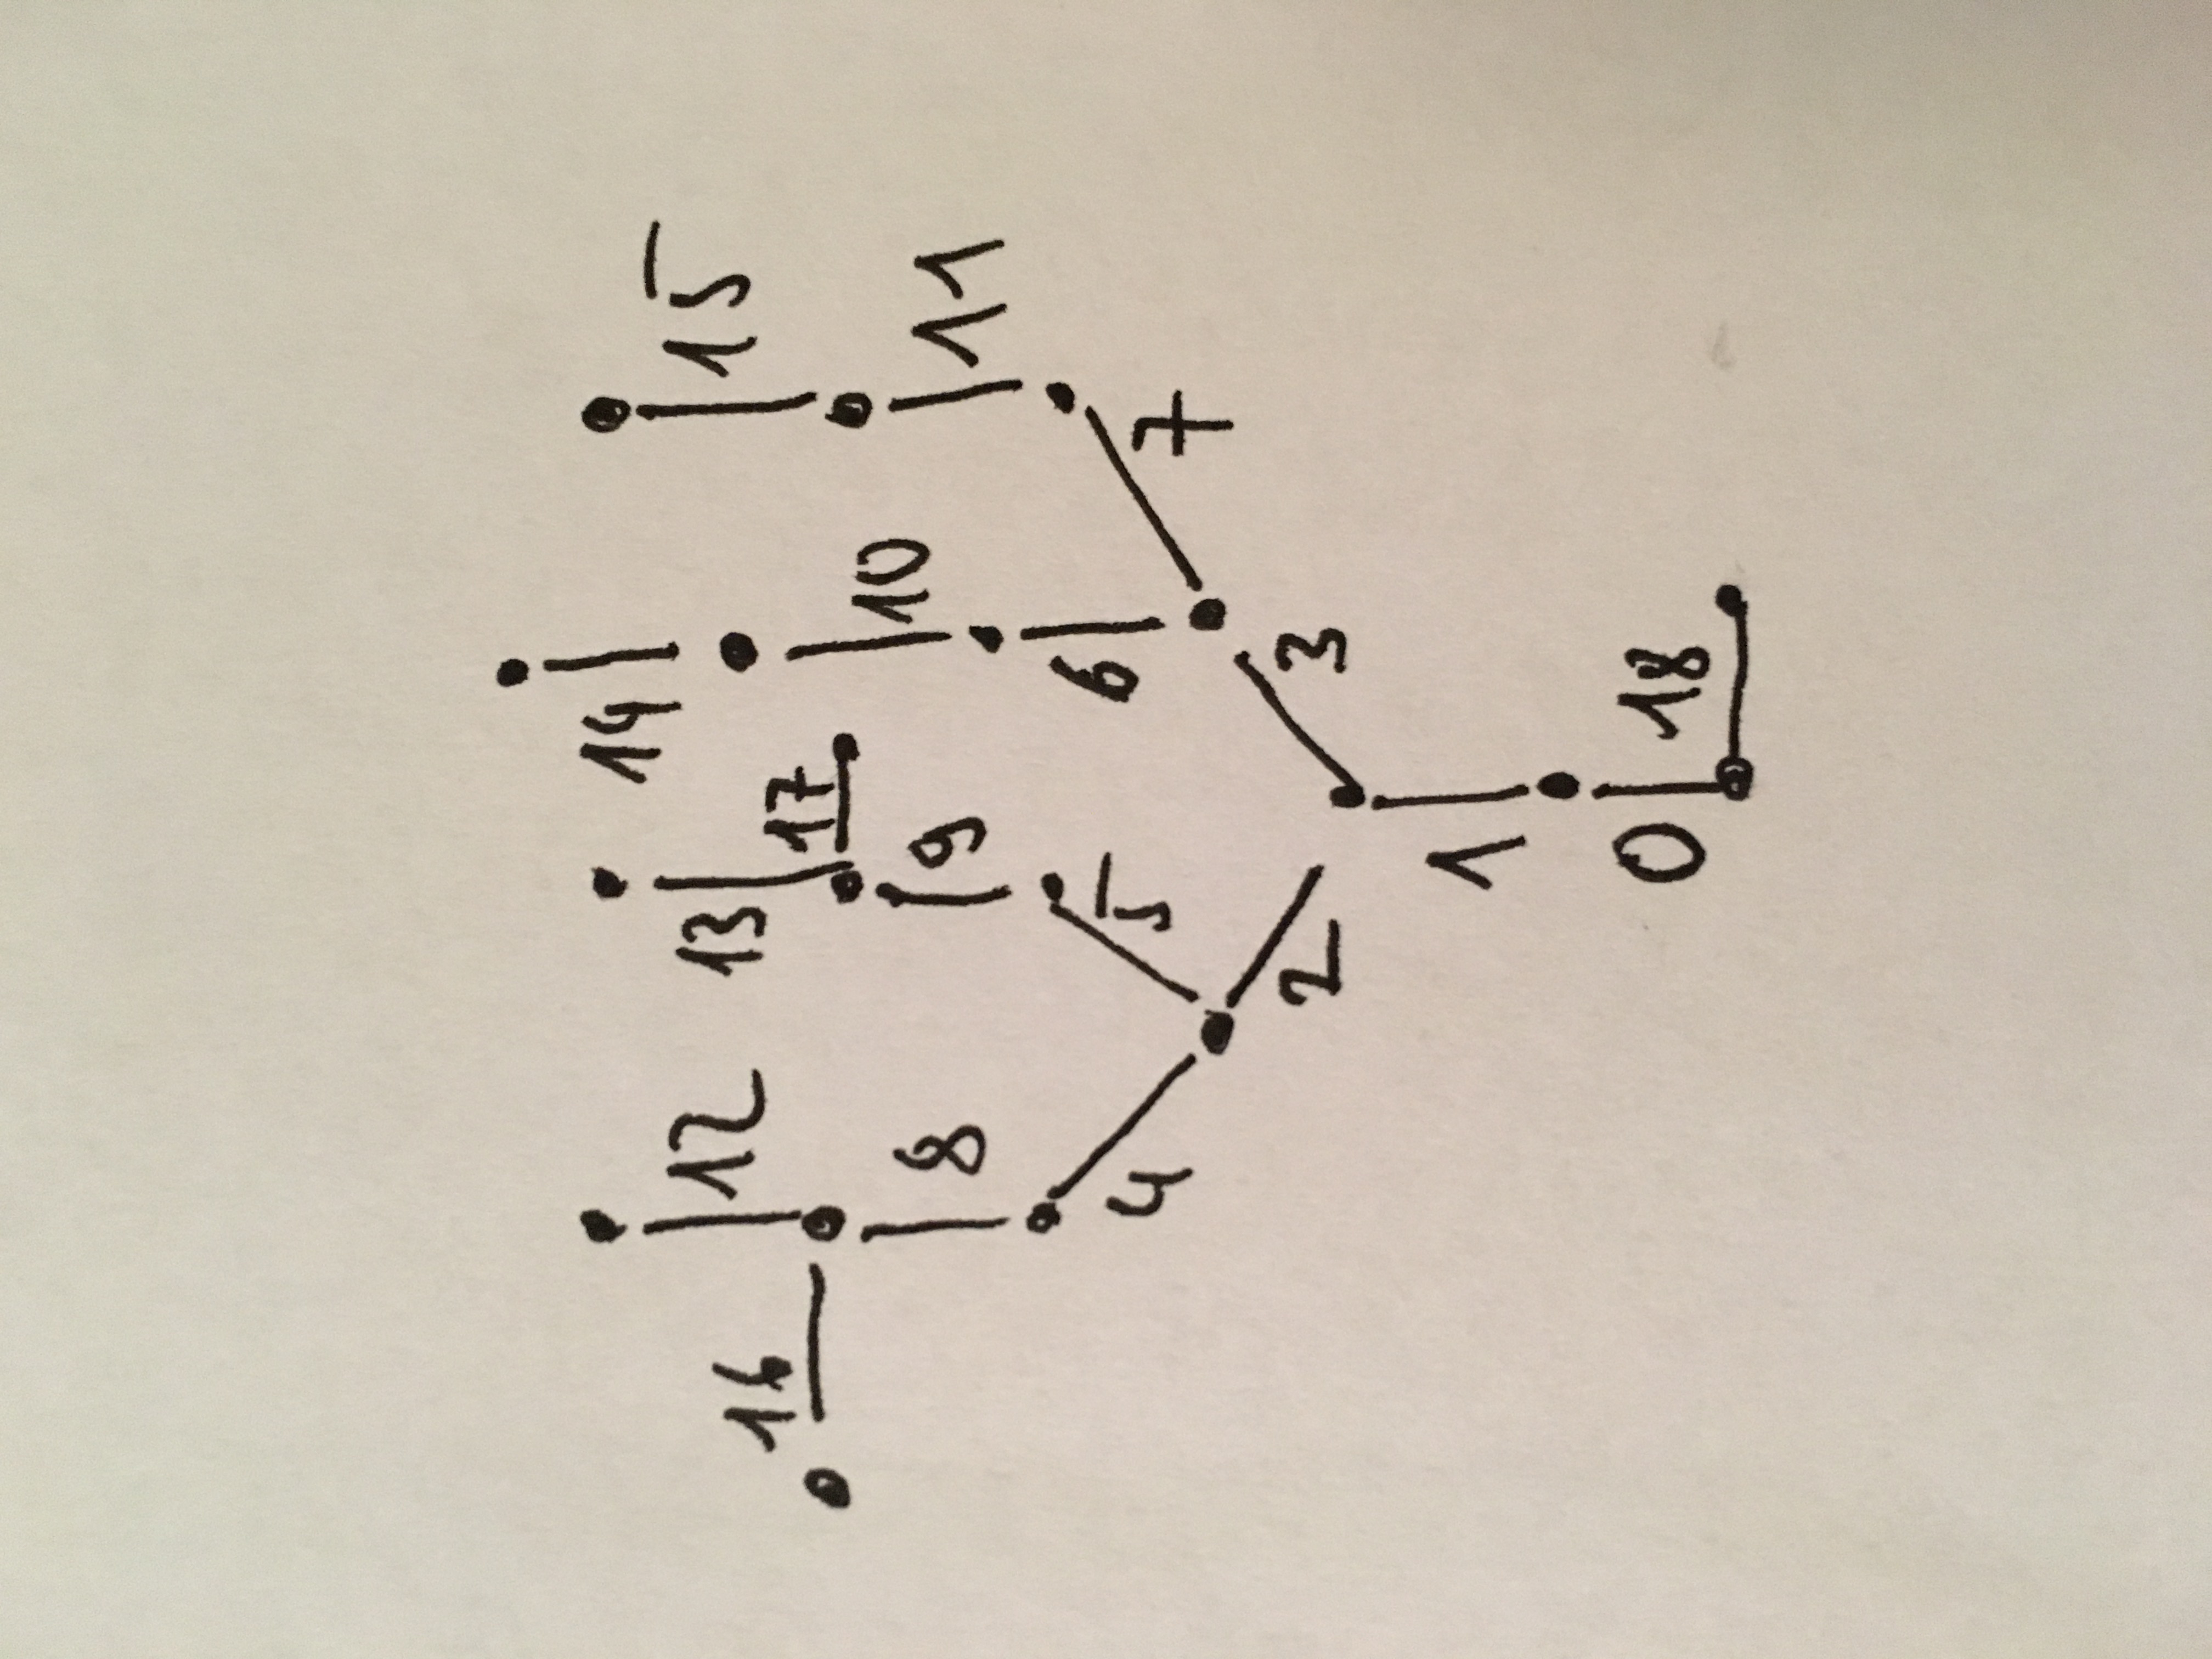 14
12 13 15
16 17
10
8 9 11
6
4 5 7
2 3
1
0 18